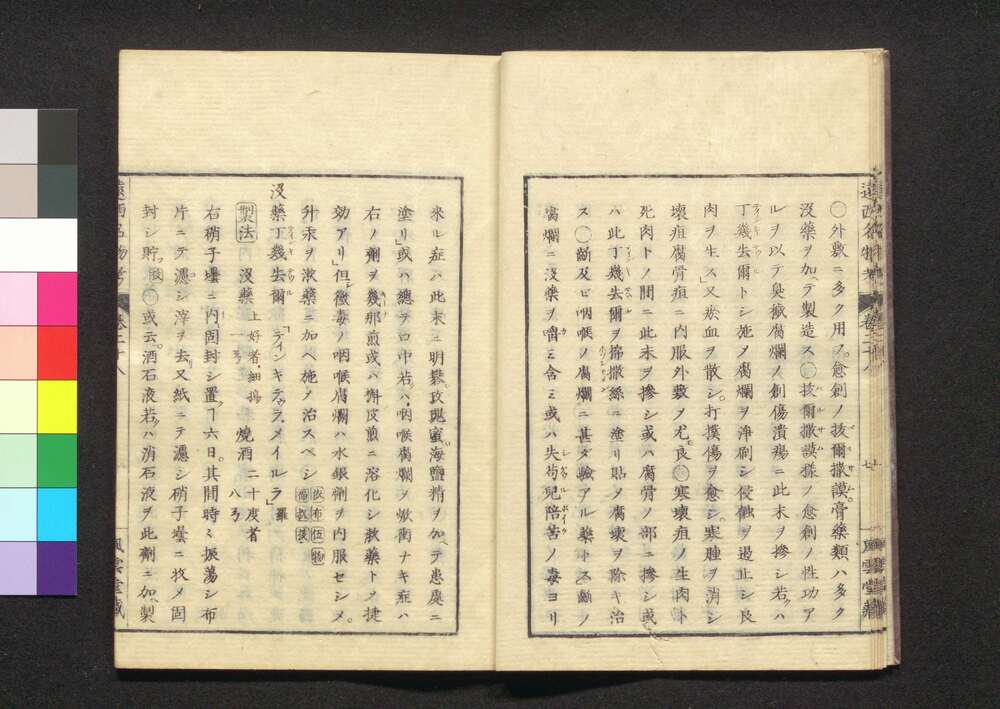 〇外敷ニ多ク用フ。愈創ノ抜爾撒謨膏薬類ハ多ク
没薬ヲ加ヘテ製造ス〇抜爾撒謨様ノ愈創ノ性功ア
ルヲ以テ臭敗腐爛ノ創傷潰瘍ニ此末ヲ摻シ若クハ
丁幾去爾トシ施メ腐爛ヲ浄刷シ侵蝕ヲ遏止シ良
肉ヲ生ス」又瘀血ヲ散シ。打撲傷ヲ愈シ。寒腫ヲ消シ
壊疽腐骨疽ニ内服外敷メ尤モ良〇寒壊疽ノ生肉ト
死肉トノ間ニ此末ヲ摻シ或ハ腐骨ノ部ニ摻シ或
ハ此丁幾去爾ヲ綿撒糸ニ塗リ貼メ腐壊ヲ除キ治
ス〇齗及ビ咽喉ノ腐爛ニ甚タ験アル薬トス齗ノ
腐爛ニ没薬ヲ嚼ミ含ミ或ハ失苟児陪苦ノ毒ヨリ
遠西名物考 巻二十八 廿 風雲堂蔵
来ル症ハ此末ニ明礬。玫瑰蜜。海塩精ヲ加ヘテ患処ニ
塗リ」或ハ総テ口中若クハ咽喉腐爛メ焮衝ナキ症ハ
右ノ剤ヲ幾那煎或ハ槲皮煎ニ溶化シ漱薬トメ捷
効アリ」但シ黴毒ノ咽喉腐爛ハ水銀剤ヲ内服セシメ。
升汞ヲ漱薬ニ加ヘ施メ治スベシ
没薬丁幾去爾「ティンキテュラ。メイルラ」羅
製法 没薬 上好者。細搗 一弓 焼酒 二十度者 八弓
右硝子壜ニ内レ固封シ置ク六日。其間時々振蕩シ布
片ニテ濾シ滓ヲ去リ又紙ニテ濾シ硝子壜ニ收メ固
封シ貯フ〇或云。酒石液若クハ消石液ヲ此剤ニ加ヘ製
遠西名物考 巻二十八 風雲堂蔵